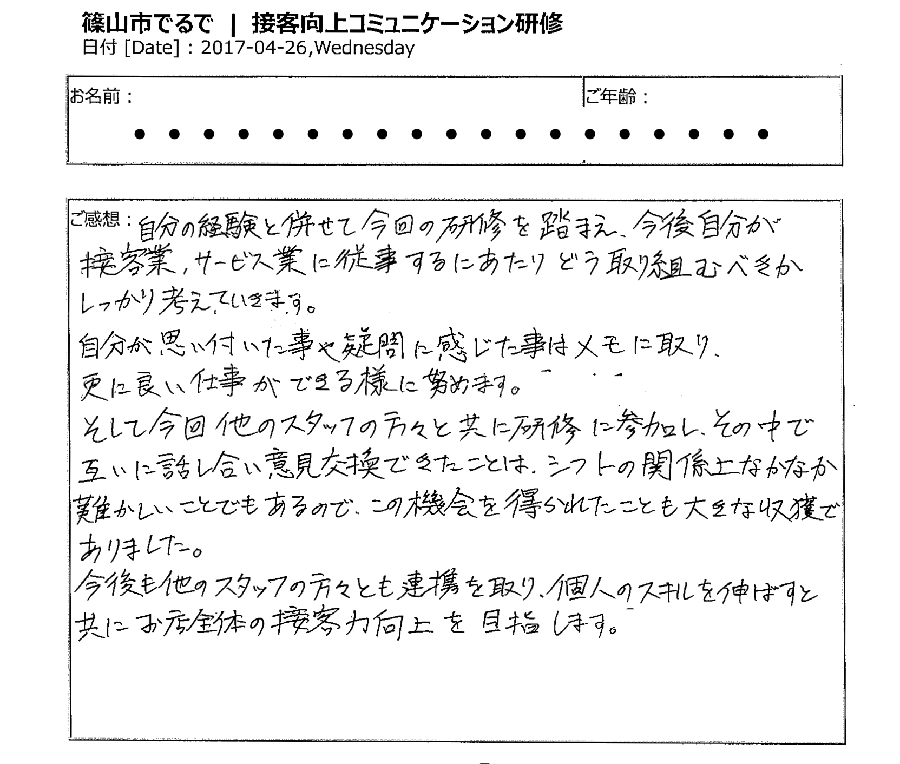 篠山市でるで | 接客向上コミュニケーション研修
日付 [Date] : 2017-04-26,Wednesday
お名前： ご年齢：
● ● ● ● ● ● ● ● ● ● ● ● ● ● ● ● ● ● ●
ご感想：自分の経験と併せて今回の研修を踏まえ、今後自分が
接客業,サービス業に従事するにあたりどう取り組むべきか
しっかり考えていきます。
自分が思い付いた事や疑問に感じた事はメモに取り、
更に良い仕事ができる様に努めます。
そして今回他のスタッフの方々と共に研修に参加し、その中で
互いに話し合い意見交換できたことは、シフトの関係上なかなか
難かしいことでもあるので、この機会を得られたことも大きな収獲で
ありました。
今後も他のスタッフの方々とも連携を取り、個人のスキルを伸ばすと
共にお店全体の接客力向上を目指します。